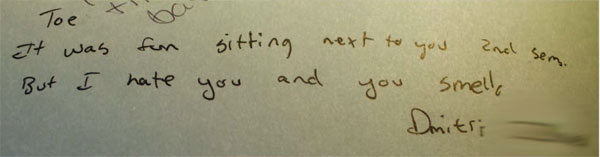 Toe
It was fun sitting next to you 2nd sem.
But I hate you and you smell,
Dmitri